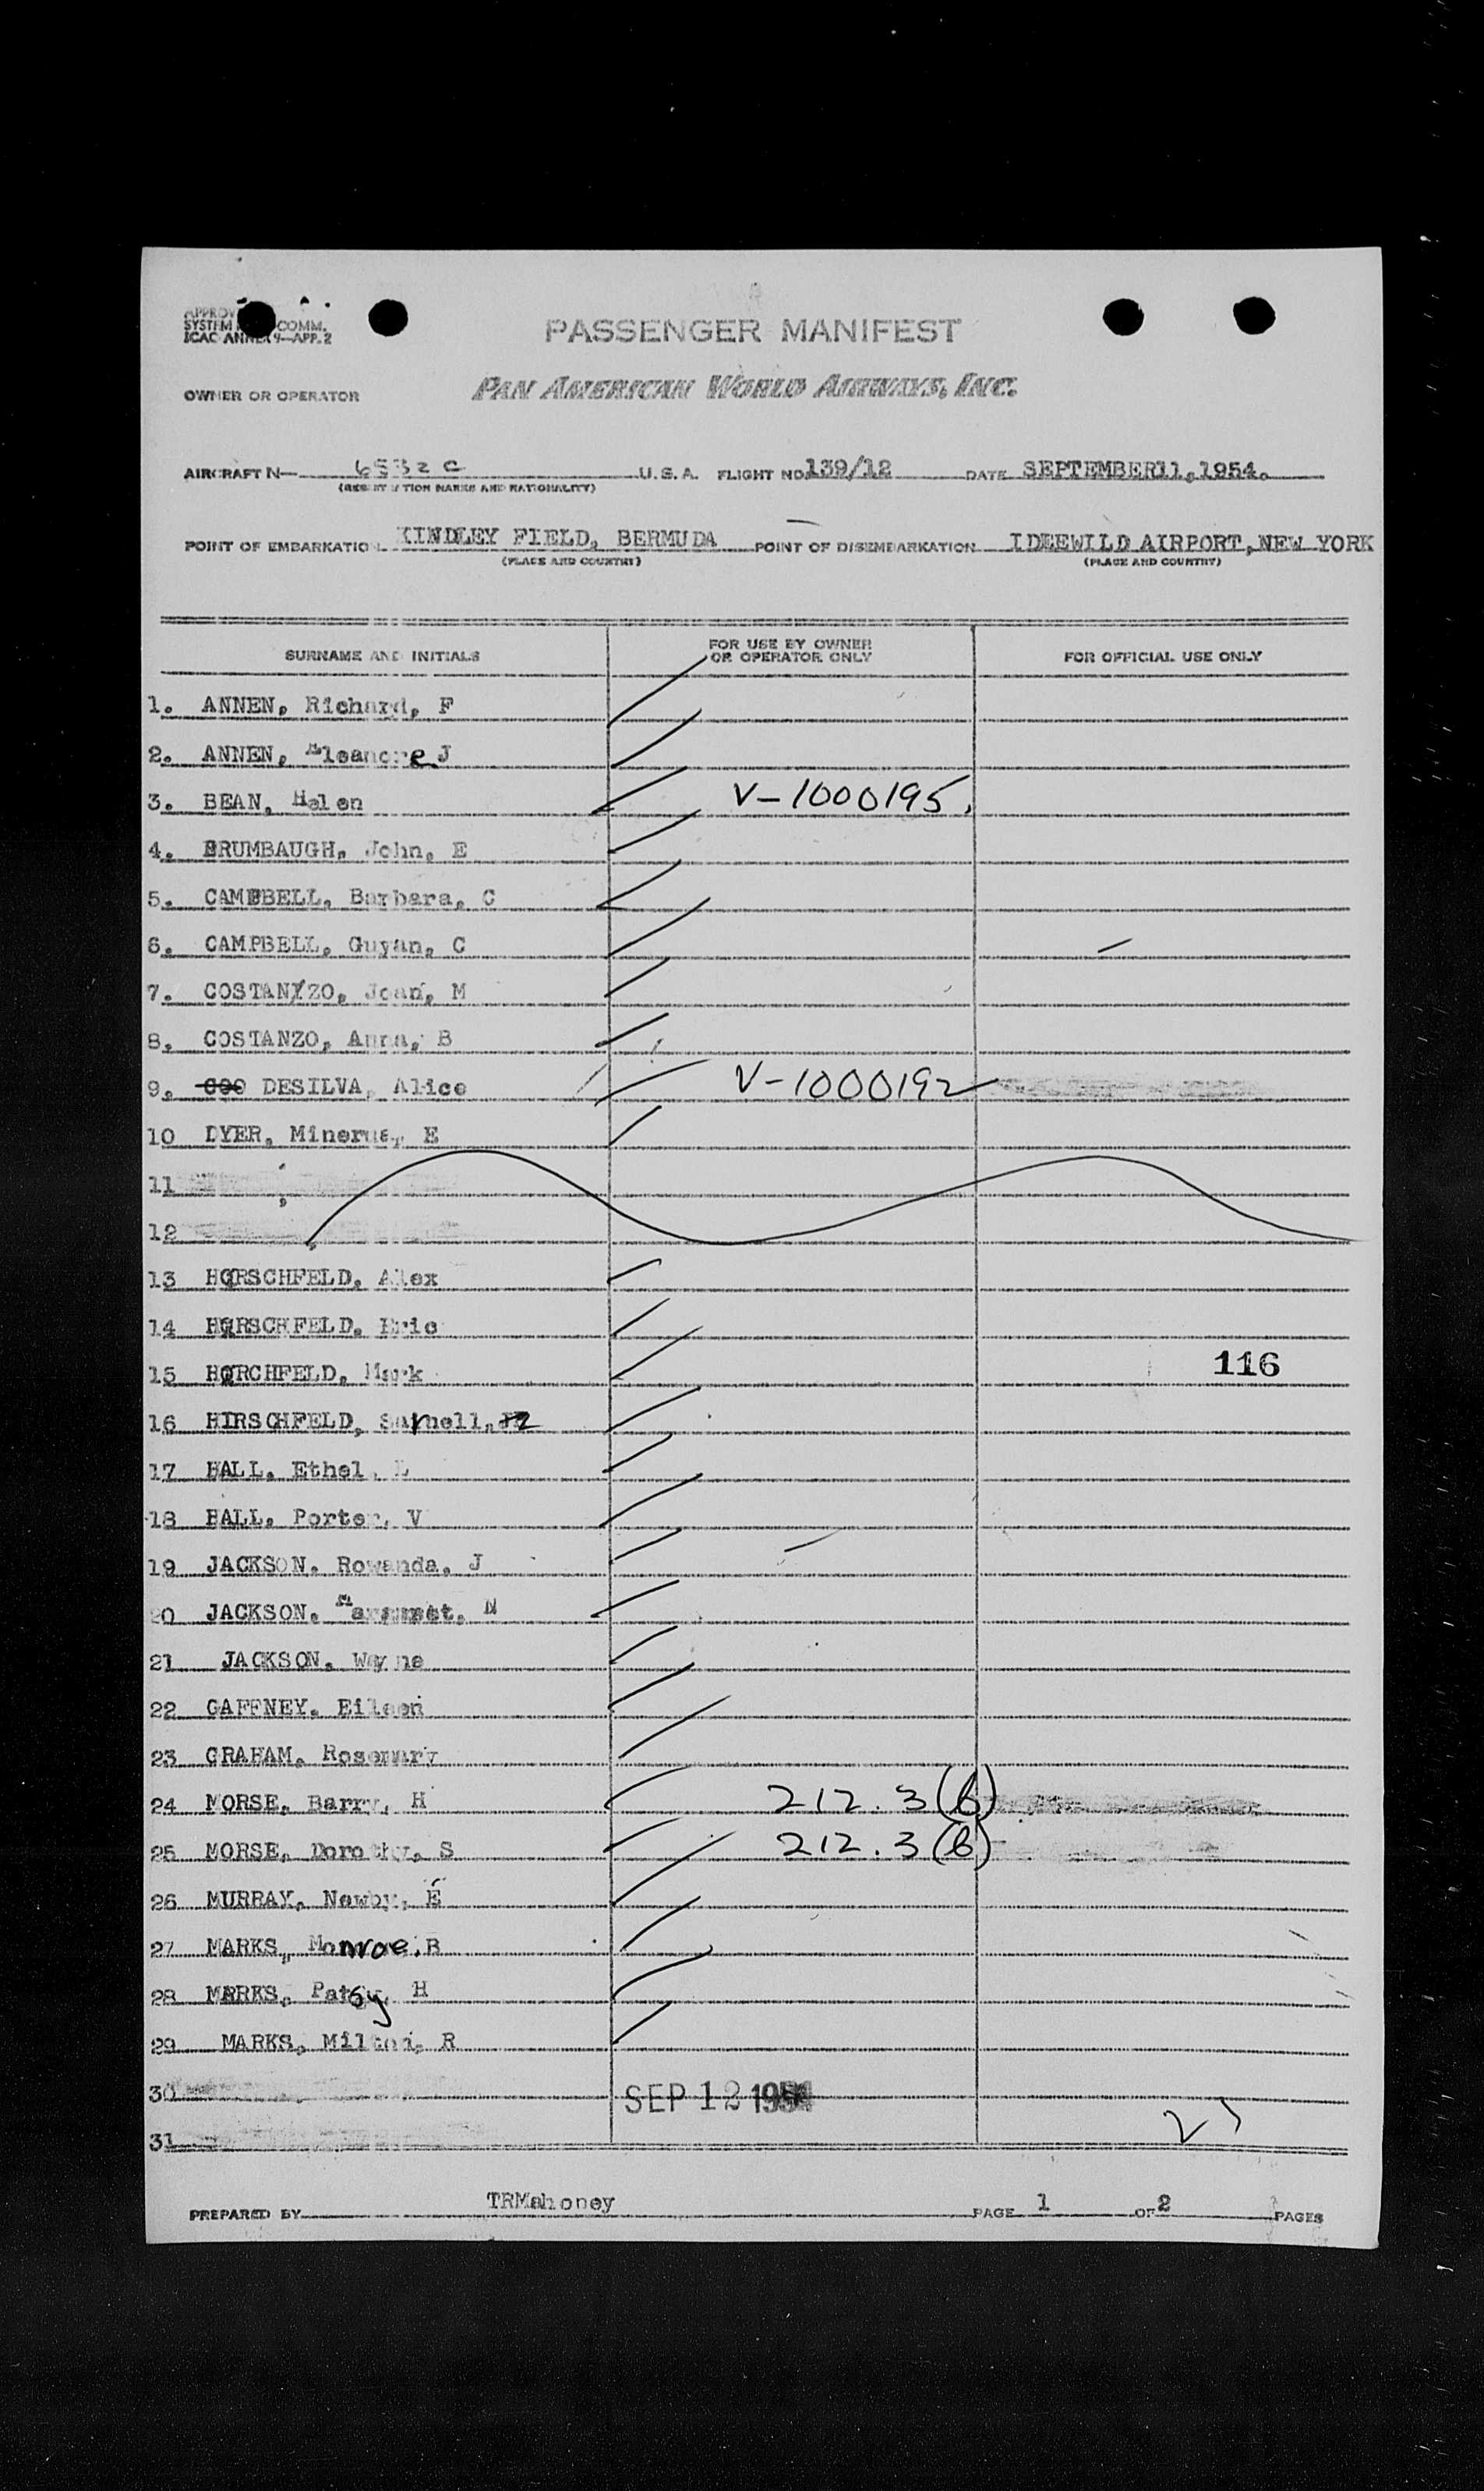 SYSTEM COMM.
ICAO ANNEX 9—APP. 2
PASSENGER MANIFEST
OWNER OR OPERATOR PAN AMERICAN WORLD AIRWAYS, INC.
AIRCRAFT N— 6532C U.S.A. FLIGHT NO. 139/12 DATE SEPTEMBER11,1954.
(REGISTRATION MARKS AND NATIONALITY)
POINT OF EMBARKATION KINDLEY FIELD, BERMUDA POINT OF DISEMBARKATION IDEEWILD AIRPORT, NEW YORK
(PLACE AND COUNTRY) (PLACE AND COUNTRY)
SURNAME AND INITIALS FOR USE BY OWNER OR OPERATOR ONLY FOR OFFICIAL USE ONLY
1. ANNEN, Richard, F
2. ANNEN, Eleanore J
3. BEAN, Helen V-1000195.
4. BRUMBAUGH, John, E
5. CAMPBELL, Barbara, C
6. CAMPBELL, Guyan, C
7. COSTANZO, Joan, M
8. COSTANZO, Anna, B
9. COO DESILVA, Alice V-1000192
10 DYER, Minerva, E
11
12
13 HIRSCHFELD, Alex
14 HIRSCHFELD, Eric
15 HIRCHFELD, Mark 116
16 HIRSCHFELD, Sarnell,
17 HALL, Ethel, L
18 HALL, Porter, V
19 JACKSON, Rowanda, J
20 JACKSON, Margaret, M
21 JACKSON, Wayne
22 GAFFNEY, Eileen
23 GRAHAM, Rosemary
24 MORSE, Barry, H 212.3(b)
25 MORSE, Dorothy, S 212.3(b)
26 MURRAY, Newby, E
27 MARKS, Monroe, B
28 MARKS, Patsy, H
29 MARKS, Milton, R
30 SEP 12 1954
31 27
PREPARED BY TRMahoney PAGE 1 OF 2 PAGES